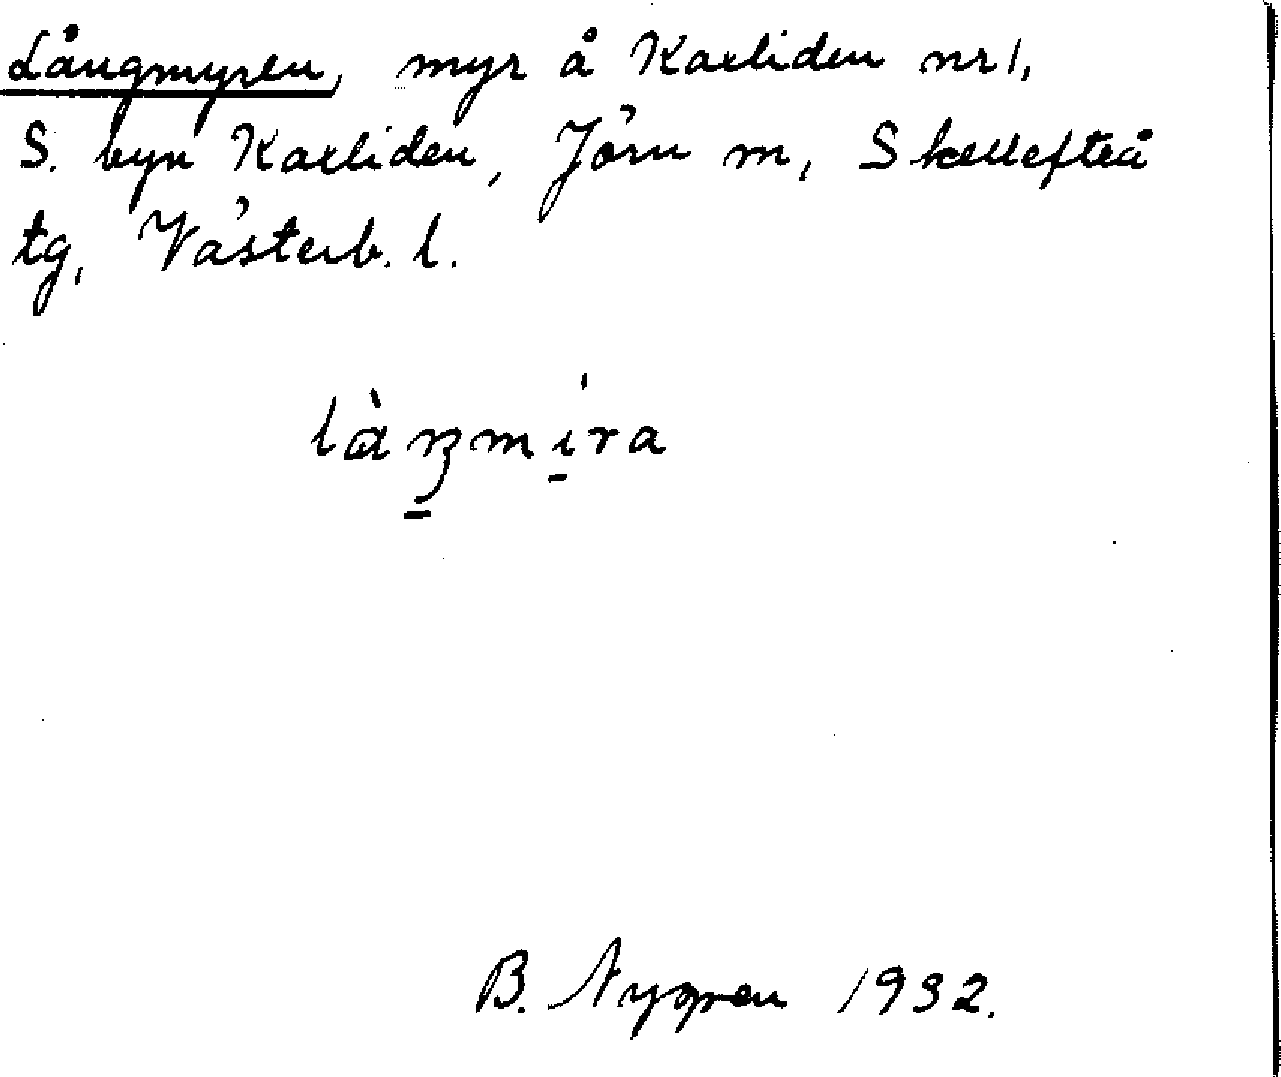 Långmyren, myr å Karliden nr 1,
S. byn Karliden, Jörn m, Skellefteå
tg, Västerb. l.
B. Nygren 1932.